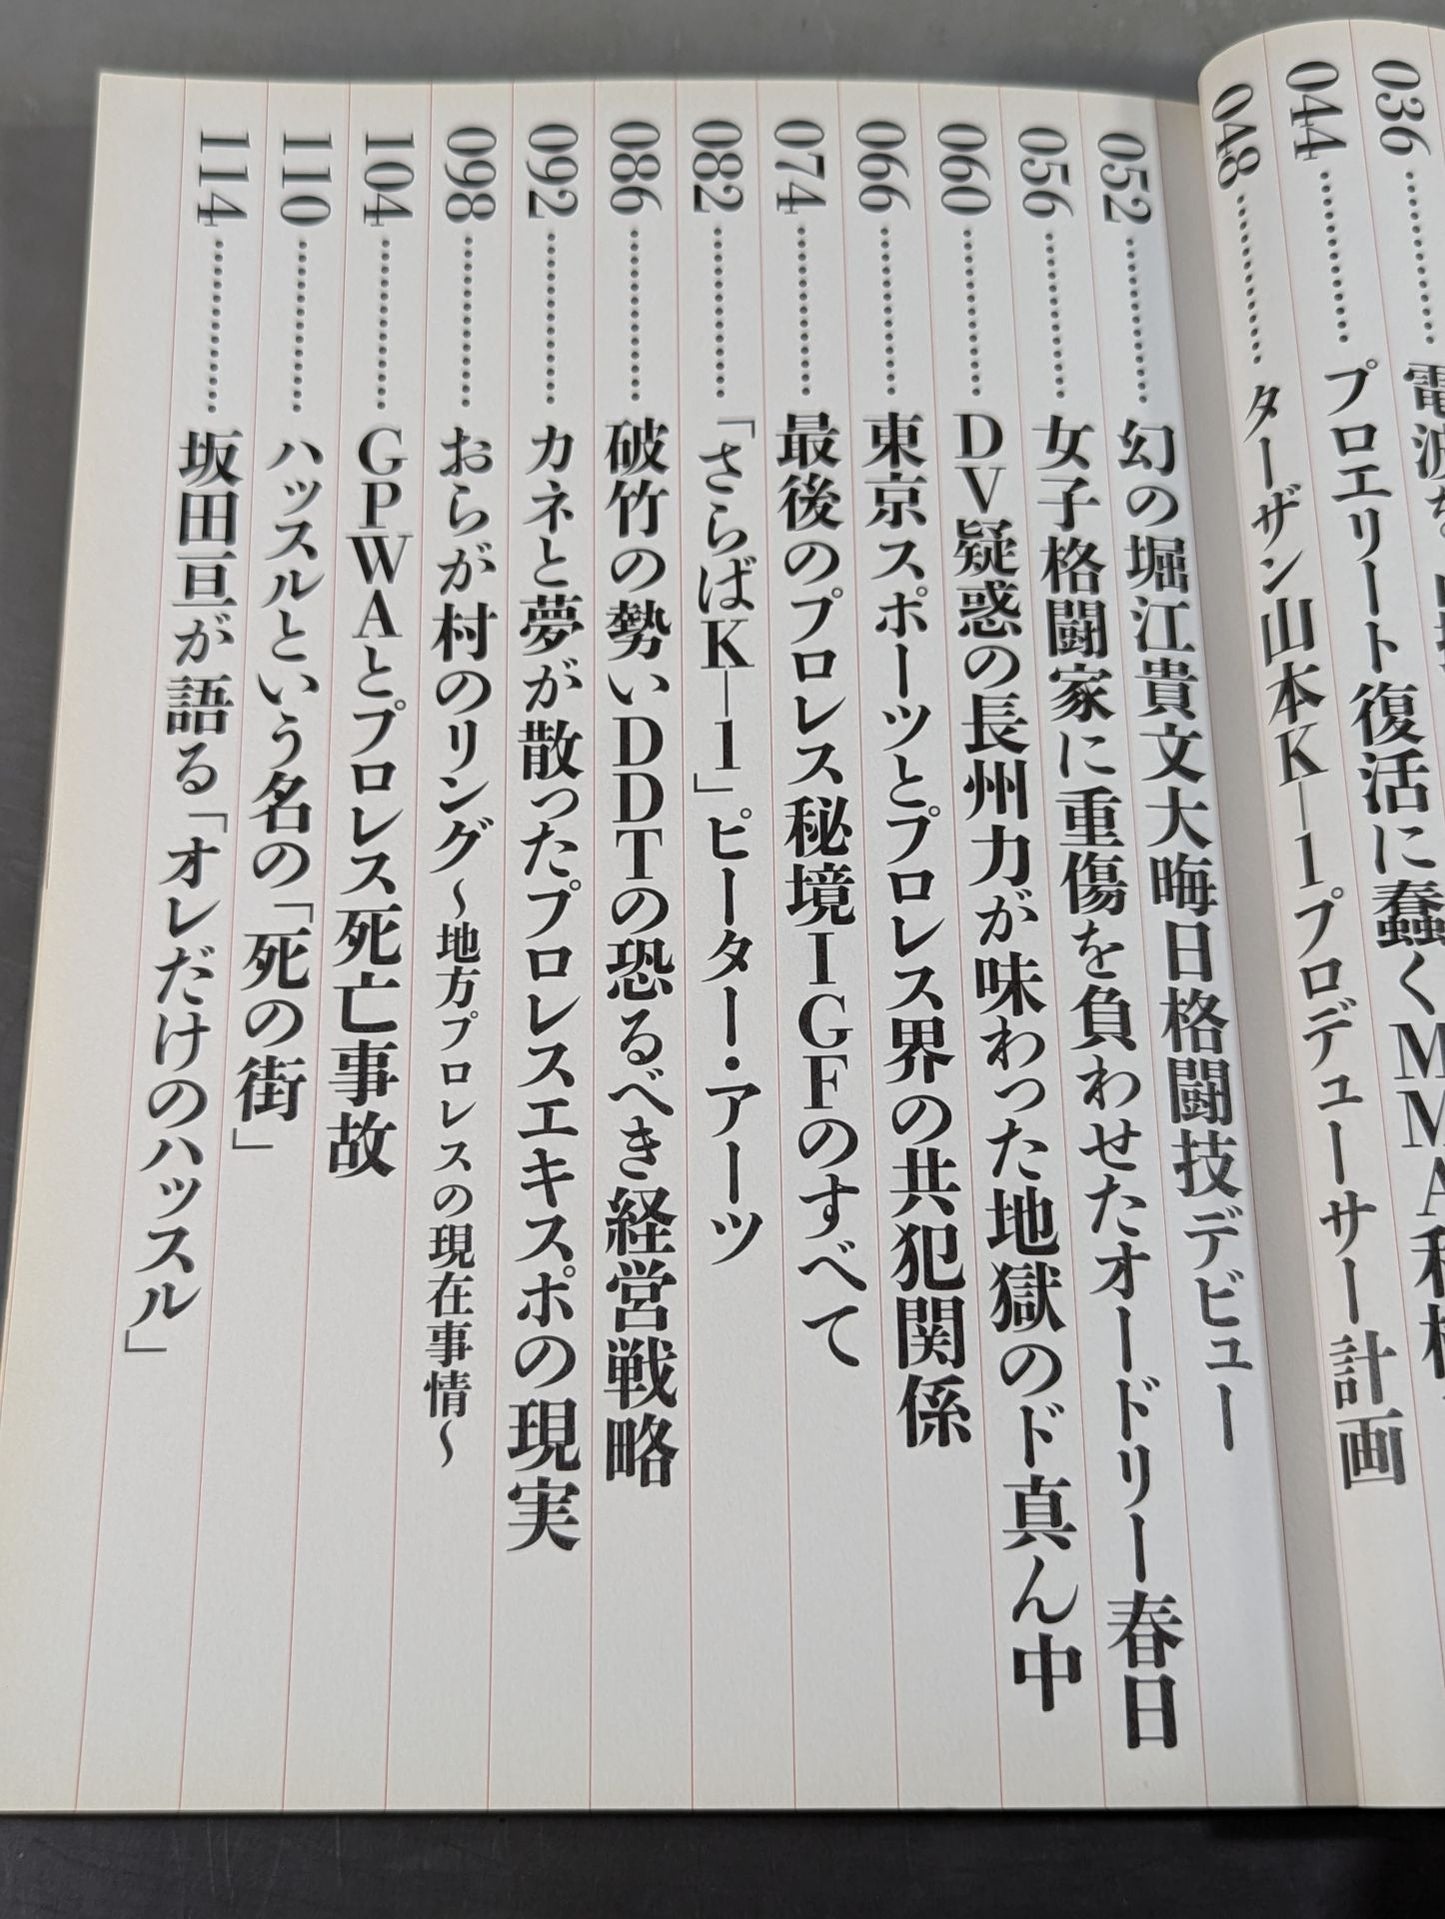 036…………電波
044…………プロエリート復活に蠢くMMA利権
048…………ターザン山本K―1プロデューサー計画
052…………幻の堀江貴文大晦日格闘技デビュー
056…………女子格闘家に重傷を負わせたオードリー春日
060…………DV疑惑の長州力が味わった地獄のド真ん中
066…………東京スポーツとプロレス界の共犯関係
074…………最後のプロレス秘境IGFのすべて
082…………「さらばK―1」ピーター・アーツ
086…………破竹の勢いDDTの恐るべき経営戦略
092…………カネと夢が散ったプロレスエキスポの現実
098…………おらが村のリング～地方プロレスの現在事情～
104…………GPWAとプロレス死亡事故
110…………ハッスルという名の「死の街」
114…………坂田亘が語る「オレだけのハッスル」